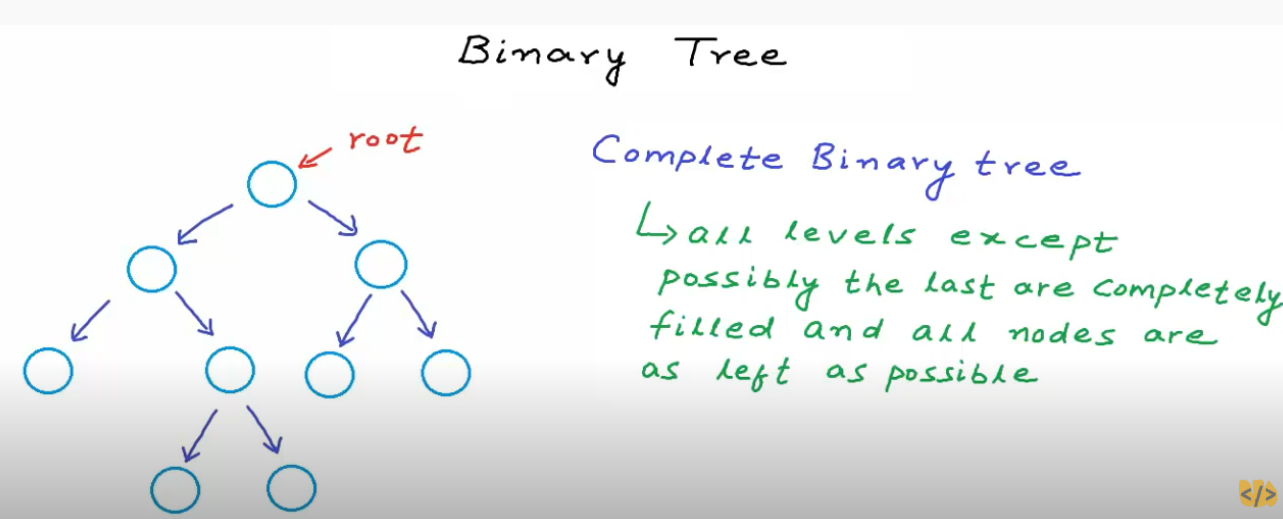 Binary Tree
root
Complete Binary tree
↳ all levels except
possibly the last are completely
filled and all nodes are
as left as possible
</>